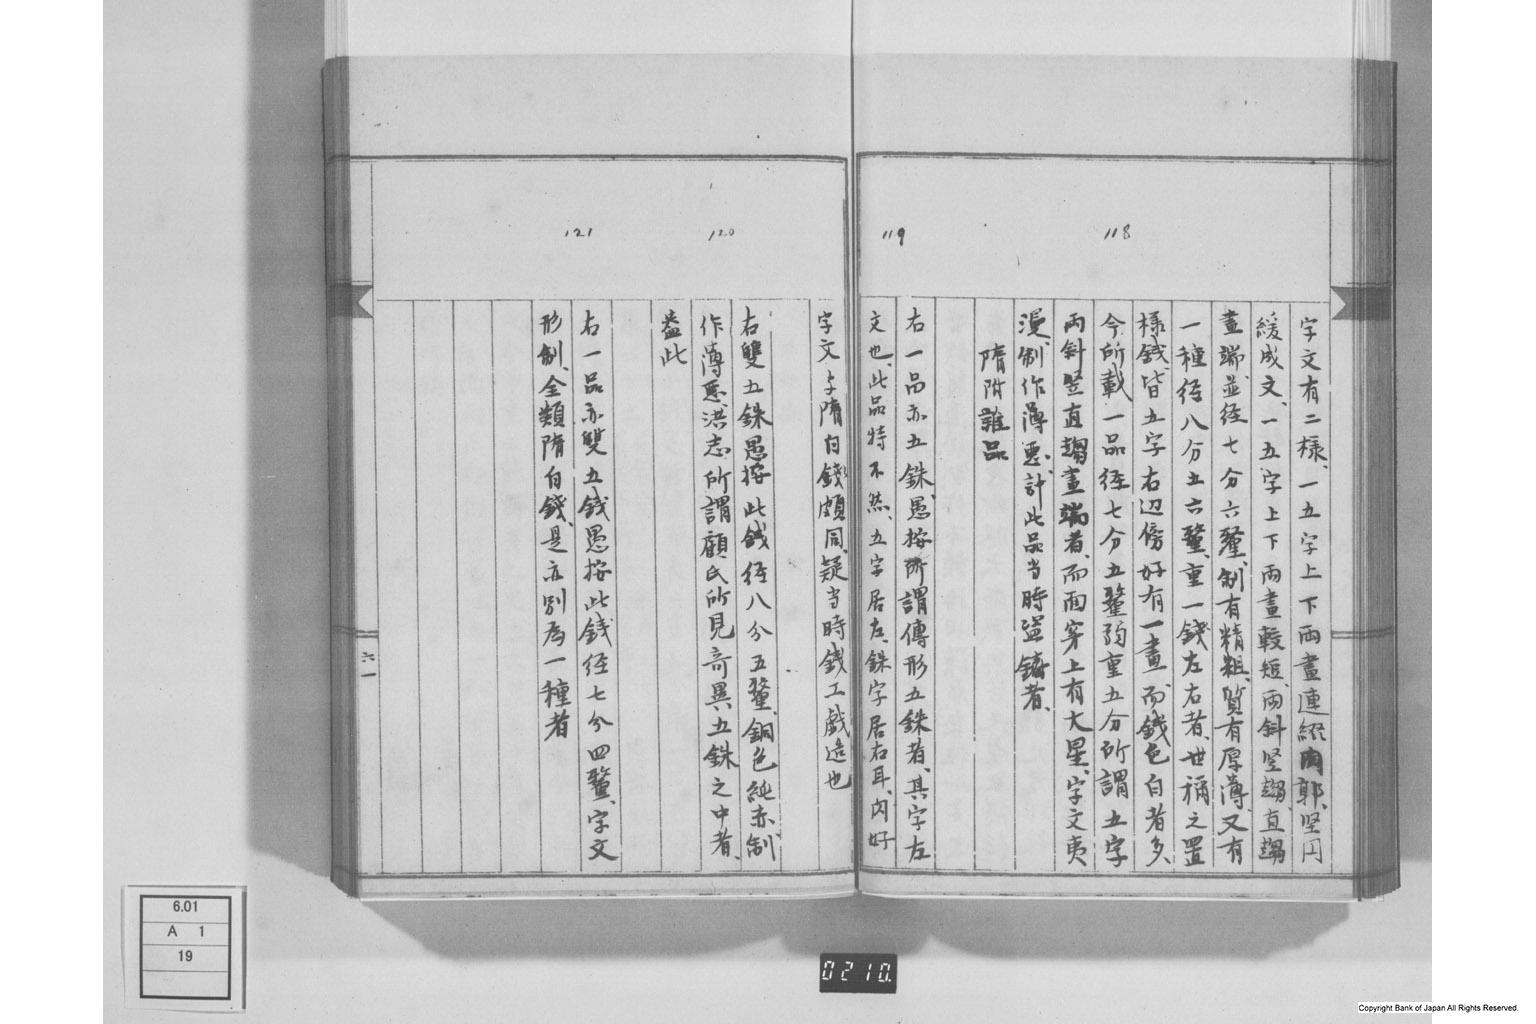 118
字文有二様、一五字上下両畫連綴内郭、堅円
緩成文、一五字上下両畫較短、両斜竖趨、直趨
畫端並径七分六釐、制有精粗、質有厚薄、又有
一種径八分五六釐、重一錢左右者、世稱之置
様錢、皆五字右辺傍好有一畫、而錢色白者多、
今所載一品径七分五釐約重五分所謂五字
両斜竖直趨畫端者、而面穿上有大星、字文夷
漫制作薄悪、計此品当時盜鑄者、
隋附雜品
119
右一品亦五銖、愚按所謂傳形五銖者、其字左
文也、此品特不然、五字居左、銖字居右耳、内好
字文与隋白錢頗同、疑当時錢工戯造也
120
右雙五銖愚按此錢径八分五釐、銅色純赤制
作薄悪、洪志所謂顧氏所見奇異五銖之中者、
蓋此
121
右一品亦雙五錢愚按此錢径七分四釐、字文
形制、全類隋白錢、是亦別為一種者
六一
6.01
A 1
19
0210.
Copyright Bank of Japan All Rights Reserved.